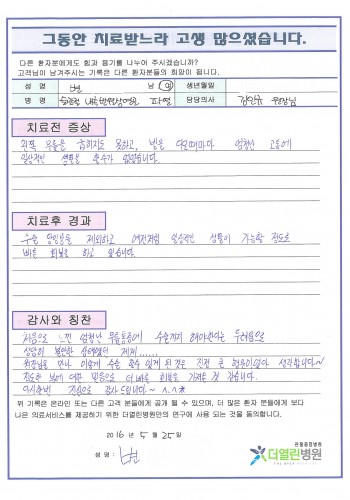 그동안 치료받느라 고생 많으셨습니다.
다른 환자분에게도 힘과 용기를 나누어 주시겠습니까?
고객님이 남겨주시는 기록은 다른 환자분들의 희망이 됩니다.
성 명 변 남 여 생년월일
병 명 파열 담당의사 원장님
치료전 증상
왼쪽 무릎을 굽히지도 못하고, 발을 디딜때마다 엄청난 고통에
일상적인 생활을 할수가 없었습니다.
치료후 경과
수술 당일만을 제외하고 예전처럼 일상적인 생활이 가능할 정도로
빠른 회복을 하고 있습니다.
감사와 칭찬
처음으로 느낀 엄청난 무릎통증에 수술까지 해야한다는 두려움으로
상당히 불안한 상태였던 제게.....
원장님을 만나 이렇게 수술 할수 있게 된것은 진정 큰 행운이었다 생각합니다~
진료한 분에 대한 믿음으로 더 빠른 회복도 가져온 것 같습니다.
다시한번 진심으로 감사드립니다~ ^.^*
위 기록은 온라인 또는 다른 고객 분들에게 공개 될 수 있으며, 더 많은 환자 분들에게 보다
나은 의료서비스를 제공하기 위한 더열린병원만의 연구에 사용 되는 것을 동의합니다.
2016 년 5 월 25 일
성 명 : 변
관절중점병원
더열린병원